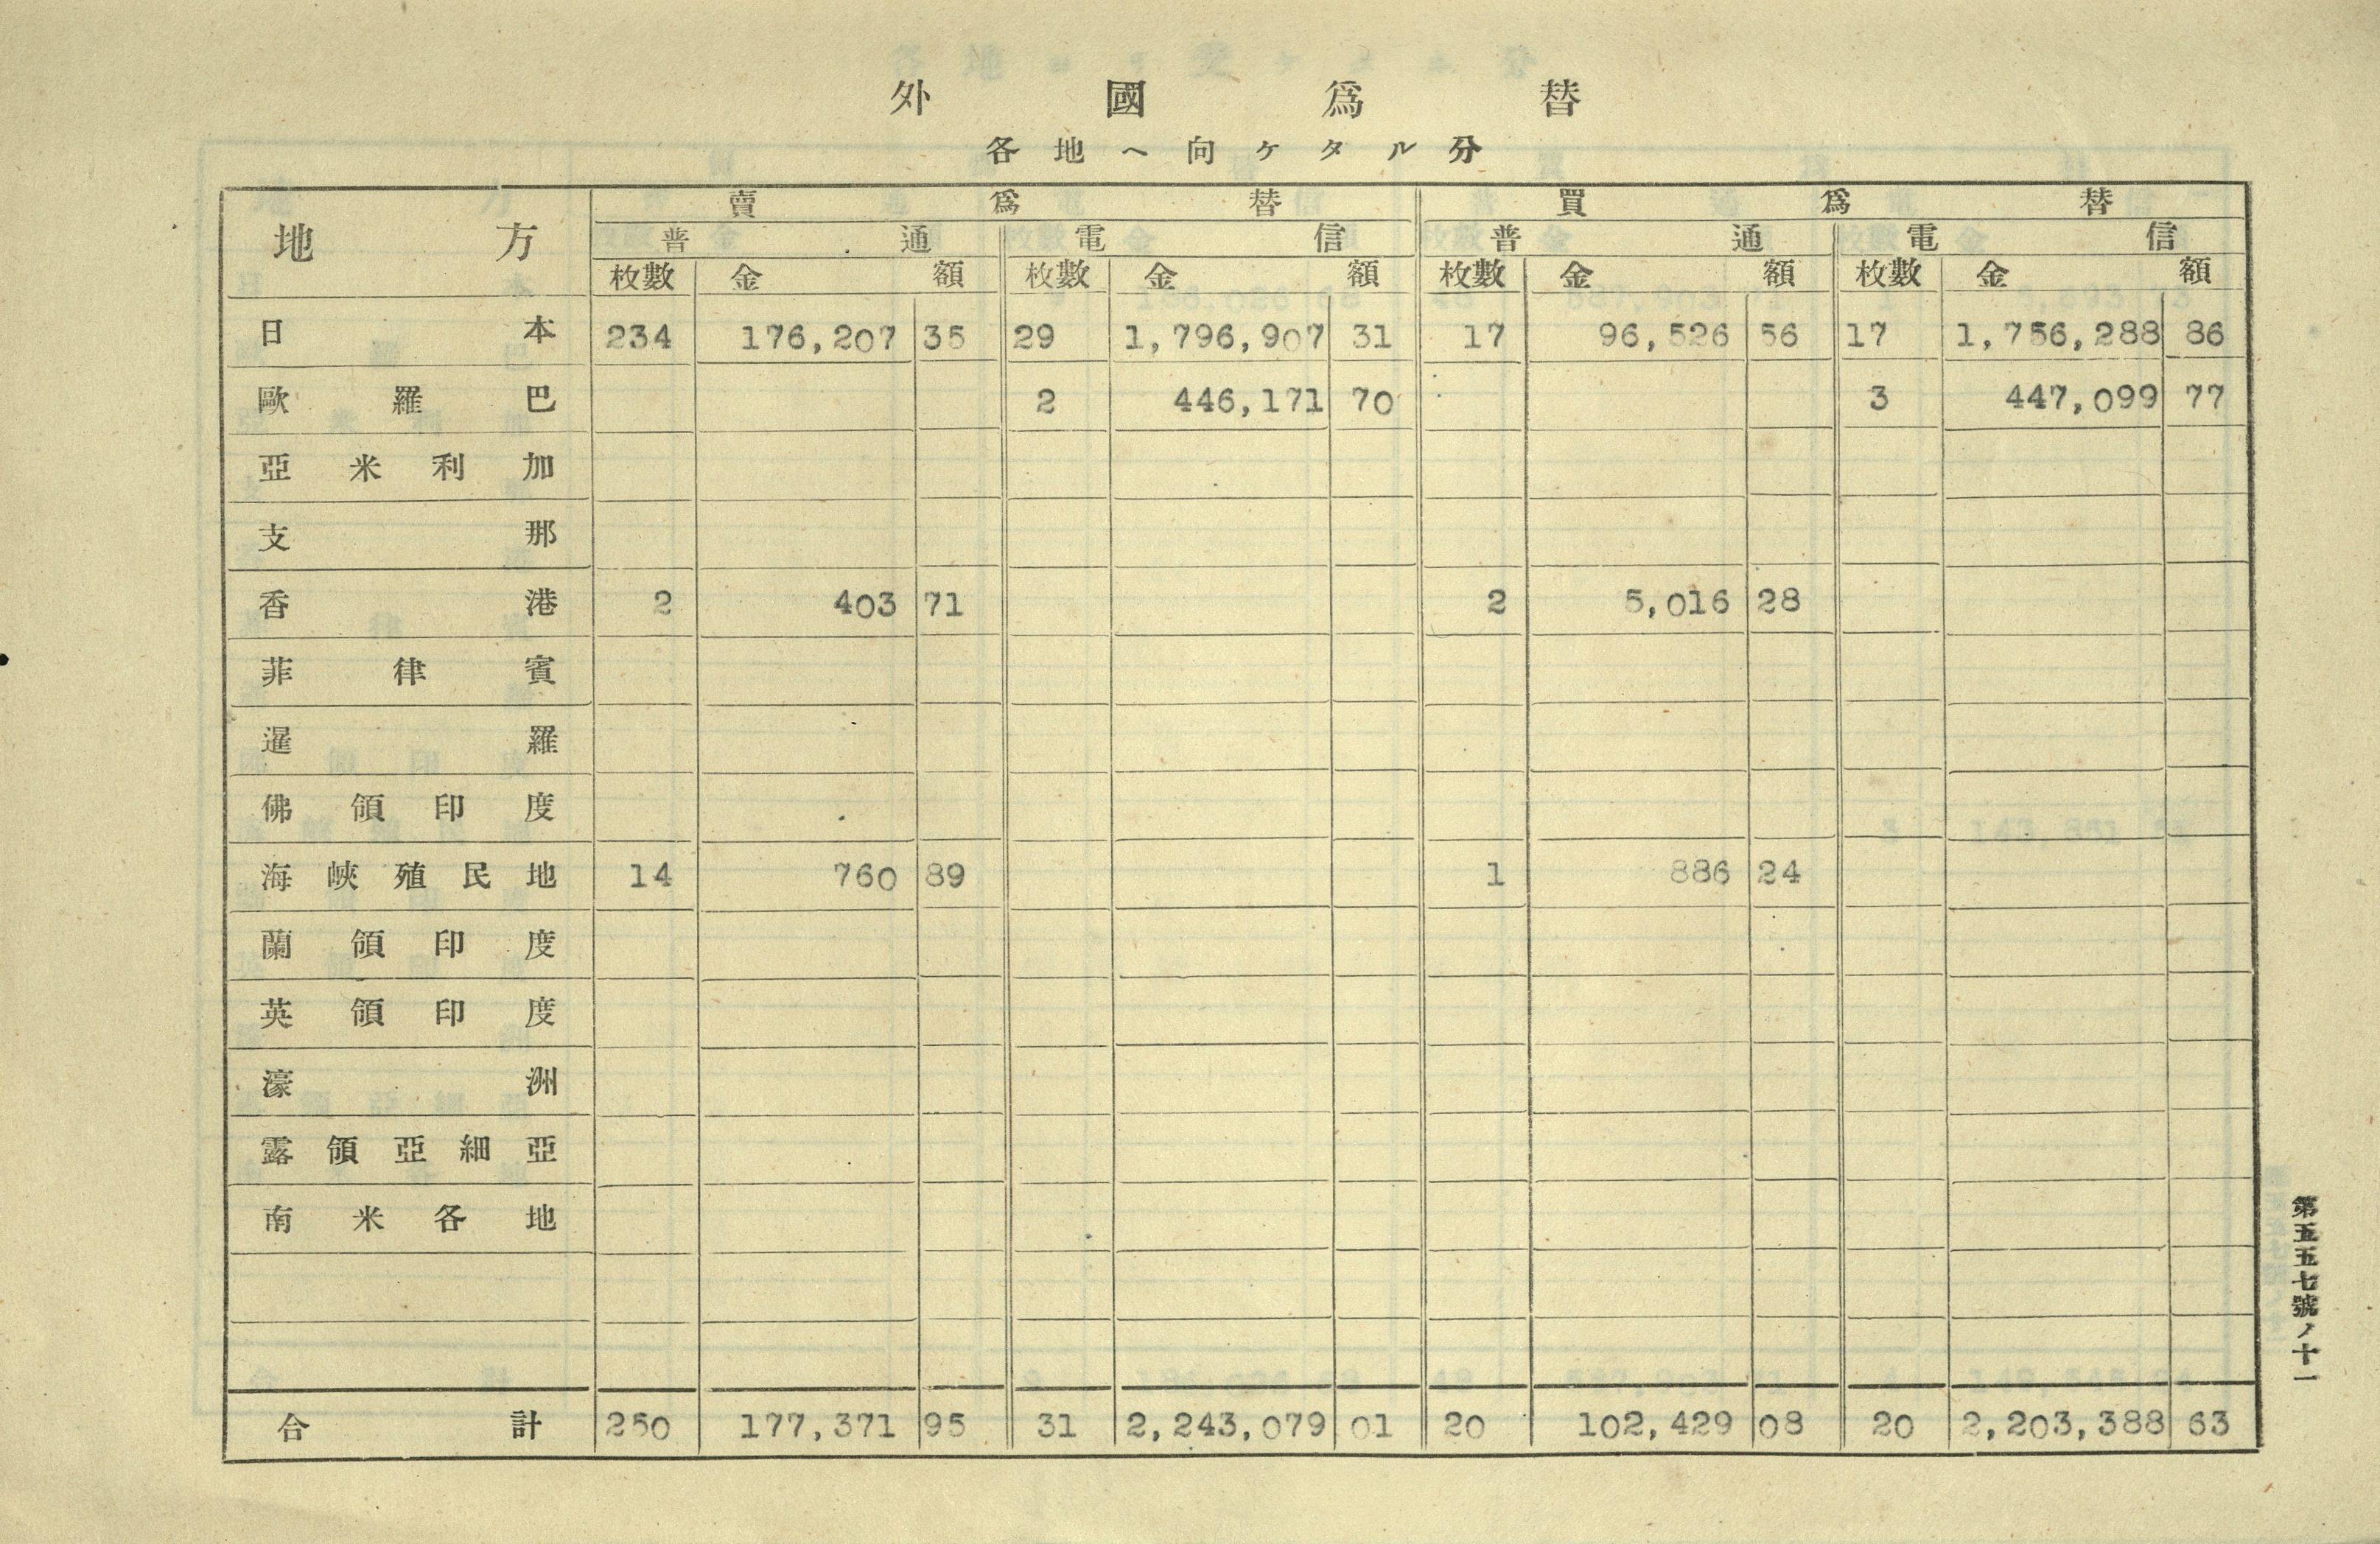 外國爲替
各地へ向ケタル分
地方 賣爲替 買爲替
普通 電信 普通 電信
枚數 金額 枚數 金額 枚數 金額 枚數 金額
日本 234 176,207 35 29 1,796,907 31 17 96,526 56 17 1,756,288 86
歐羅巴 2 446,171 70 3 447,099 77
亞米利加
支那
香港 2 403 71 2 5,016 28
菲律賓
暹羅
佛領印度
海峽殖民地 14 760 89 1 886 24
蘭領印度
英領印度
濠洲
露領亞細亞
南米各地
合計 250 177,371 95 31 2,243,079 01 20 102,429 08 20 2,203,388 63
第五五七號ノ十一